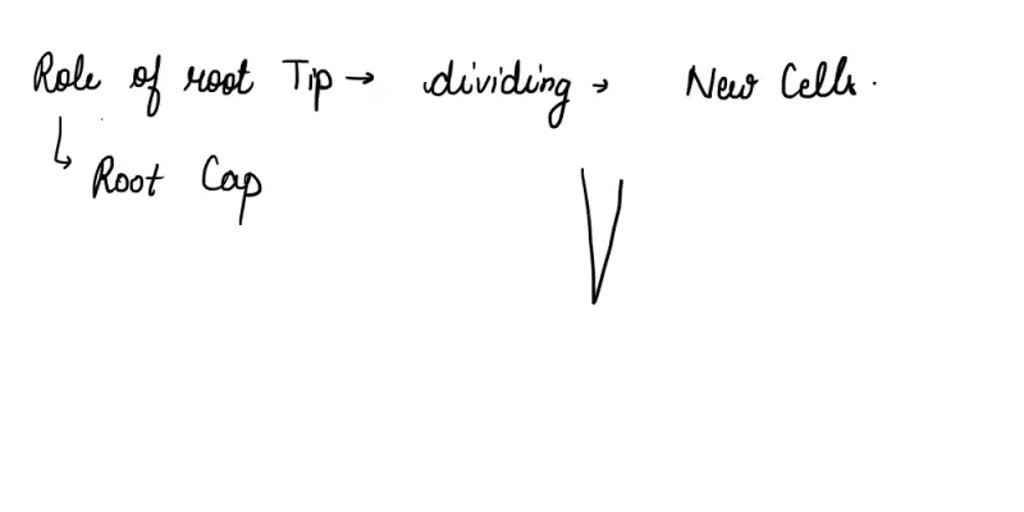 Role of root Tip → dividing → New Cells.
↳ Root Cap